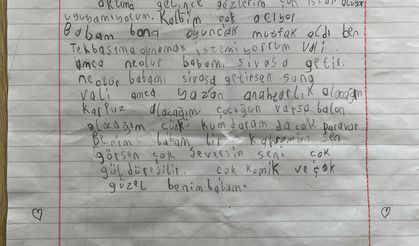 aklıma gelince gözlerim çok ıslanıyor
uyuyamıyorum. Kalbim çok acıyor
Babam bana oyuncak mutfak aldı ben
Tekbaşıma oynamak istemiyorrum Vali
amca neolur babamı sivasa getir.
neolur babamı sivasa getirsen sana
vali amca yazan anahtarlık alacağım
karpuz alacağım çocuğun varsa balon
alacağım çünkü kumbaramda çok para var
Benim babam bir kahraman sen
görsen çok seversin seni çok
güldürebilir. çok komik ve çok
güzel benim babam.